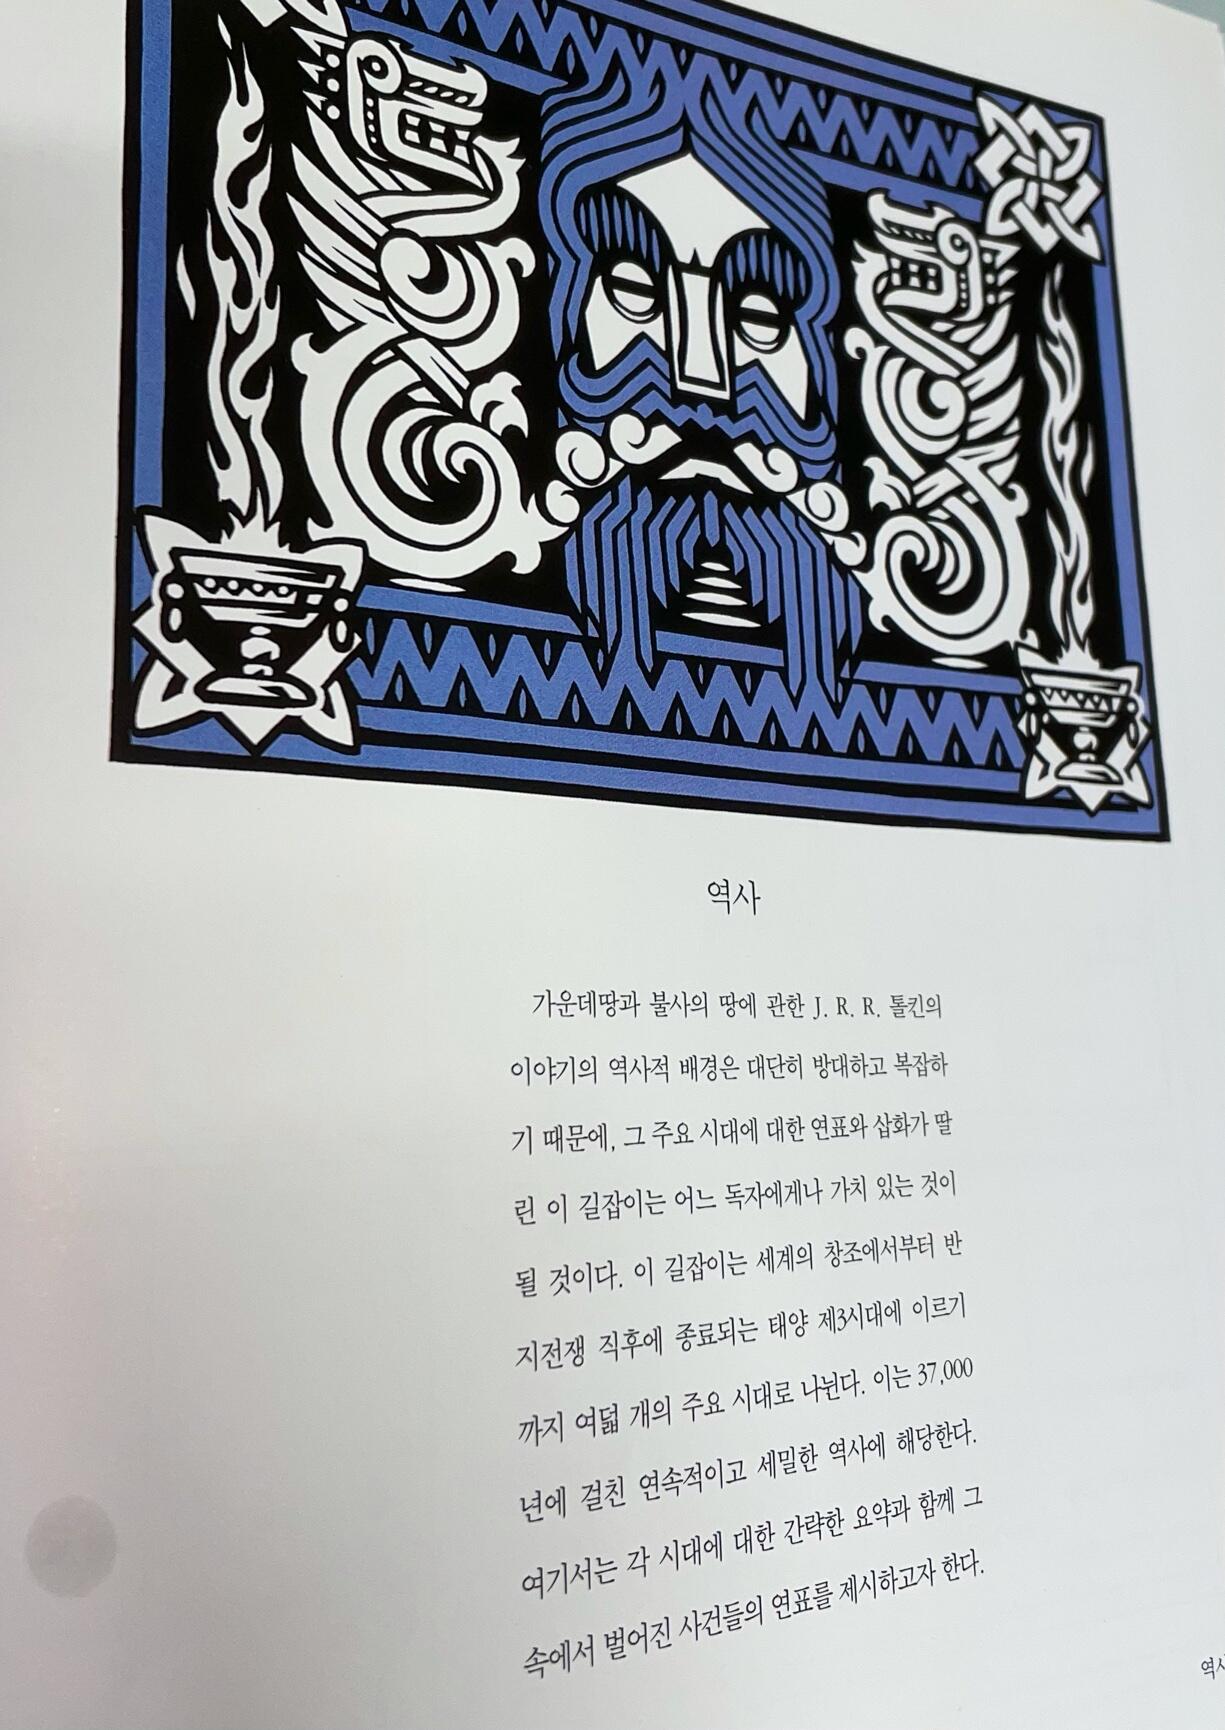 역사
가운데땅과 불사의 땅에 관한 J. R. R. 톨킨의
이야기의 역사적 배경은 대단히 방대하고 복잡하
기 때문에, 그 주요 시대에 대한 연표와 삽화가 딸
린 이 길잡이는 어느 독자에게나 가치 있는 것이
될 것이다. 이 길잡이는 세계의 창조에서부터 반
지전쟁 직후에 종료되는 태양 제3시대에 이르기
까지 여덟 개의 주요 시대로 나뉜다. 이는 37,000
년에 걸친 연속적이고 세밀한 역사에 해당한다.
여기서는 각 시대에 대한 간략한 요약과 함께 그
속에서 벌어진 사건들의 연표를 제시하고자 한다.